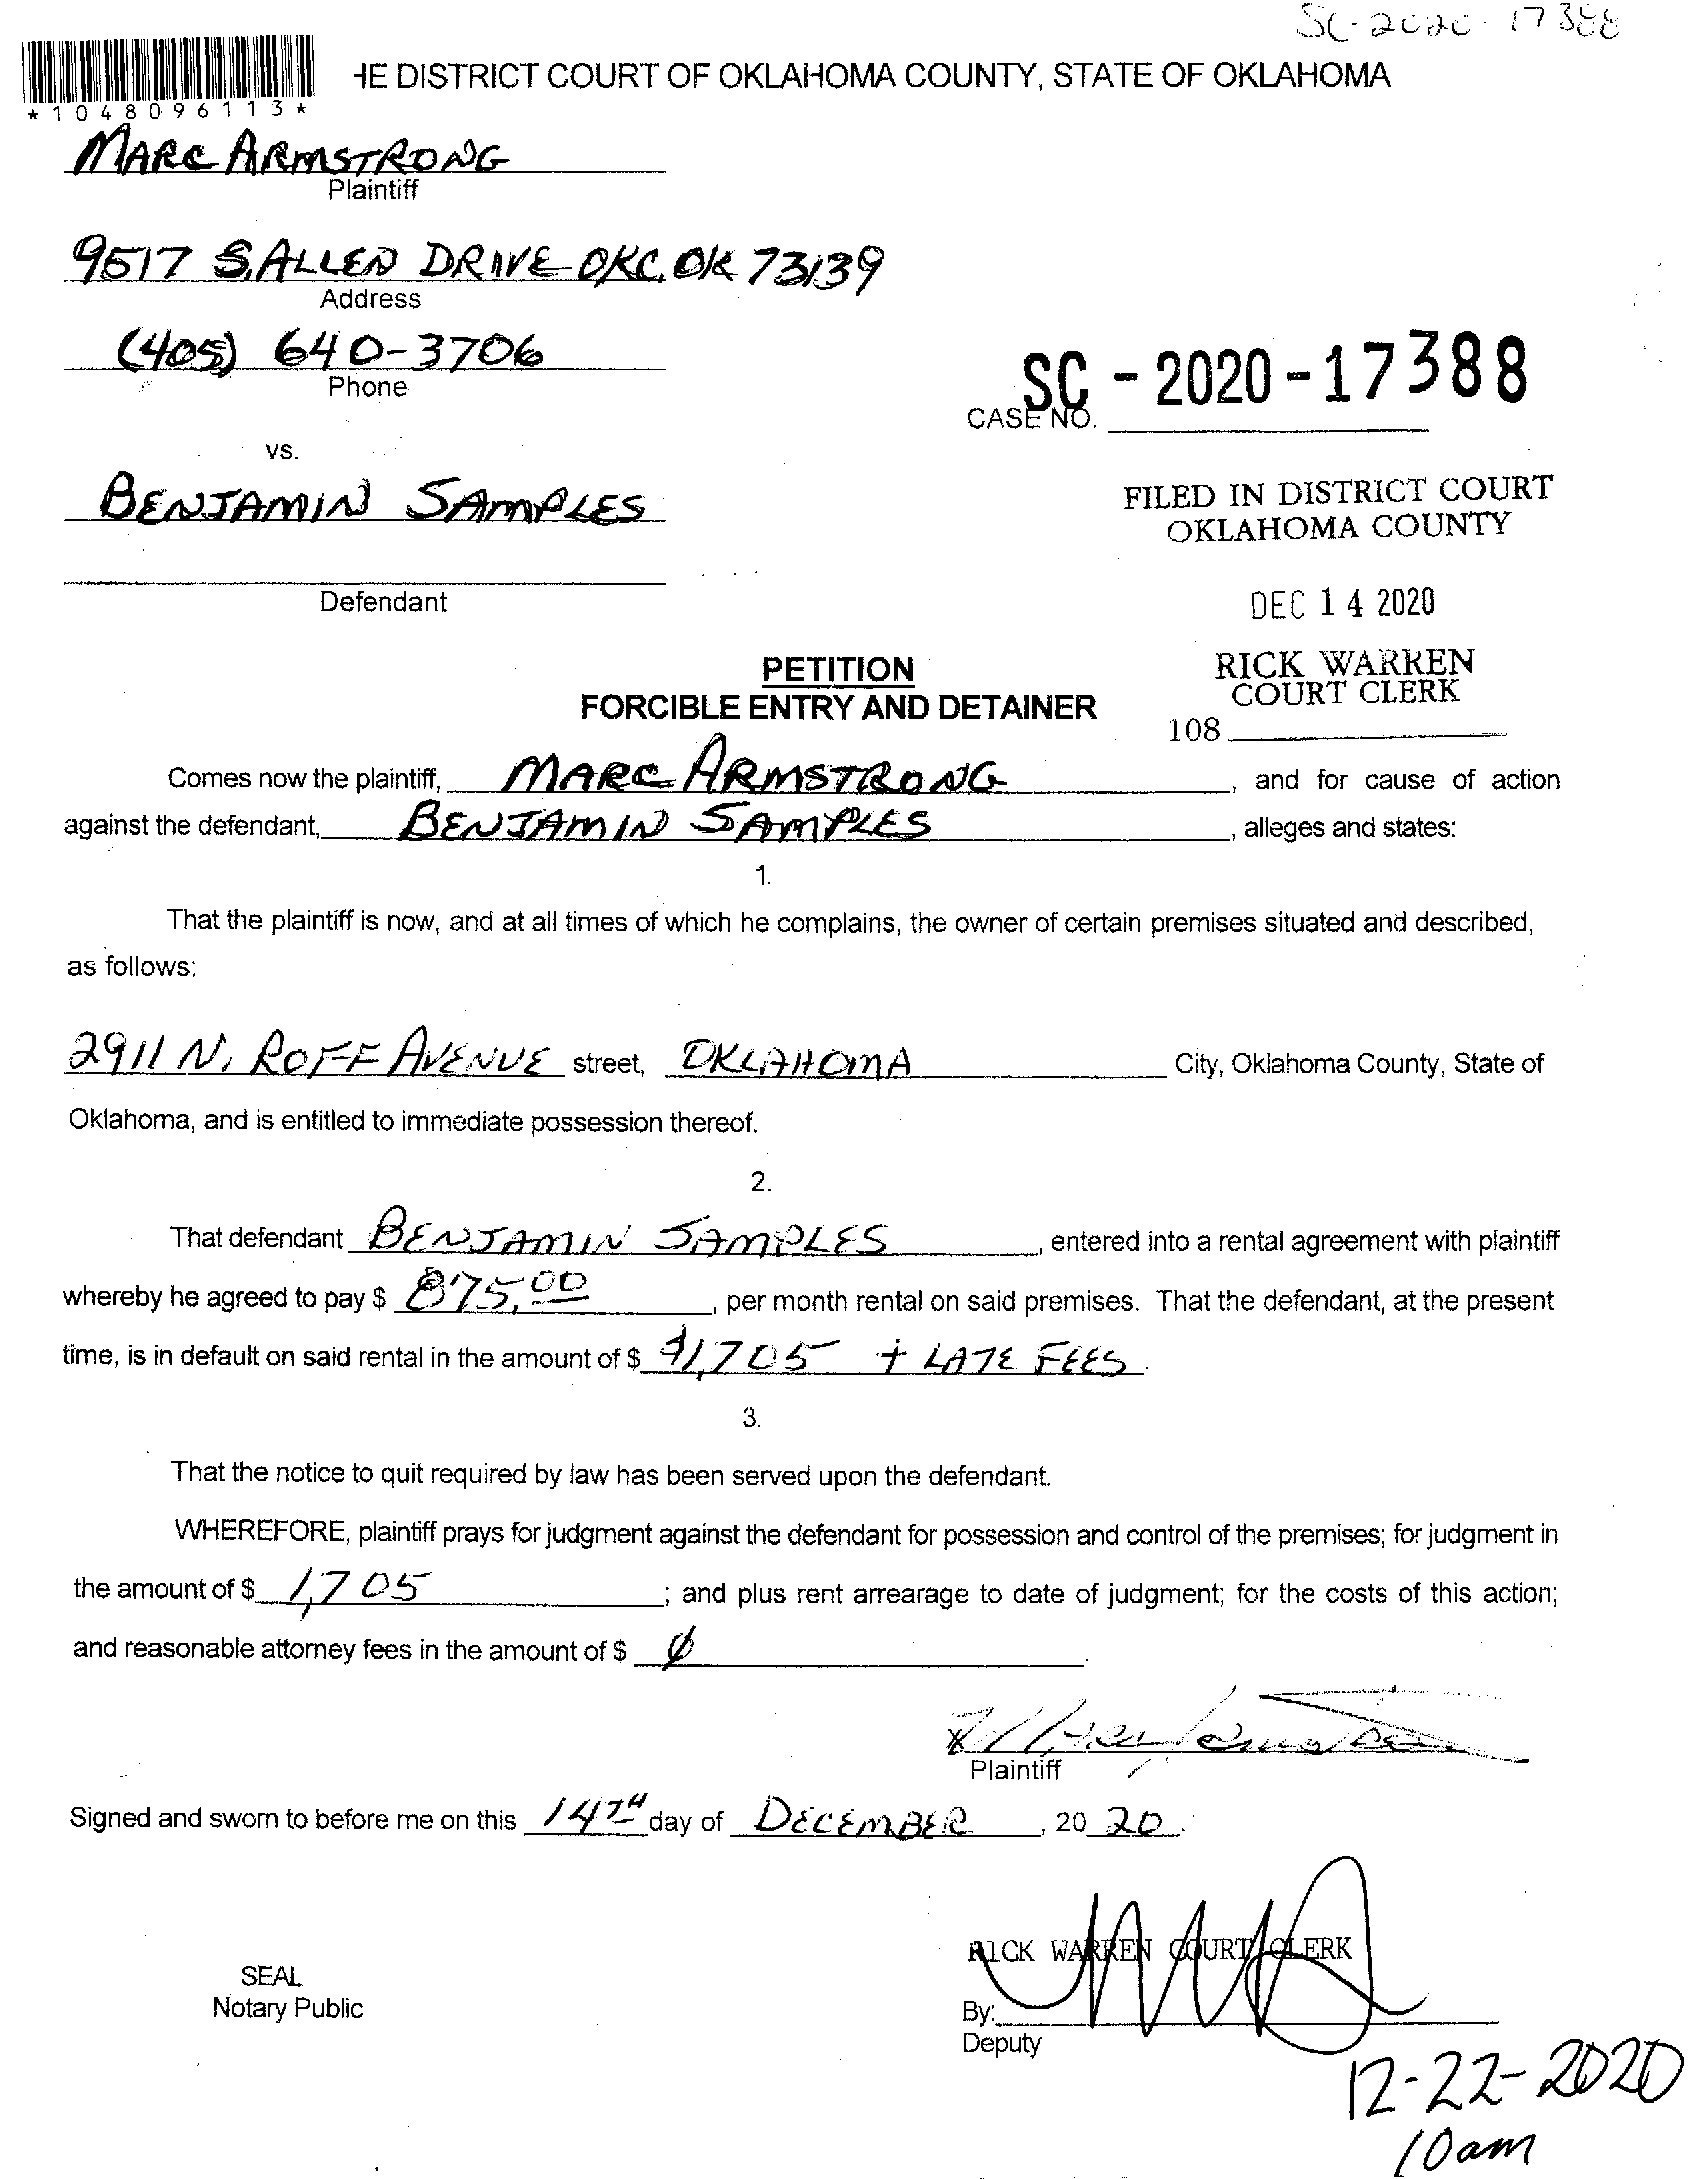 SC-2020-17388
*1048096113*
HE DISTRICT COURT OF OKLAHOMA COUNTY, STATE OF OKLAHOMA
MARC ARMSTRONG
Plaintiff
9517 S. ALLEN DRIVE OKC, OK 73139
Address
(405) 640-3706
Phone
SC-2020-17388
CASE NO.
vs.
BENJAMIN SAMPLES
FILED IN DISTRICT COURT
OKLAHOMA COUNTY
Defendant
DEC 14 2020
PETITION
FORCIBLE ENTRY AND DETAINER
RICK WARREN
COURT CLERK
108
Comes now the plaintiff, MARC ARMSTRONG, and for cause of action
against the defendant, BENJAMIN SAMPLES, alleges and states:
1.
That the plaintiff is now, and at all times of which he complains, the owner of certain premises situated and described,
as follows:
2911 N. ROFF AVENUE street, OKLAHOMA City, Oklahoma County, State of
Oklahoma, and is entitled to immediate possession thereof.
2.
That defendant BENJAMIN SAMPLES, entered into a rental agreement with plaintiff
whereby he agreed to pay $ 875.00, per month rental on said premises. That the defendant, at the present
time, is in default on said rental in the amount of $ $1,705 + LATE FEES.
3.
That the notice to quit required by law has been served upon the defendant.
WHEREFORE, plaintiff prays for judgment against the defendant for possession and control of the premises; for judgment in
the amount of $ 1,705; and plus rent arrearage to date of judgment; for the costs of this action;
and reasonable attorney fees in the amount of $ ∅.
X
Plaintiff
Signed and sworn to before me on this 14TH day of DECEMBER, 20 20.
RICK WARREN COURT CLERK
SEAL
Notary Public
By:
Deputy
12-22-2020
10am